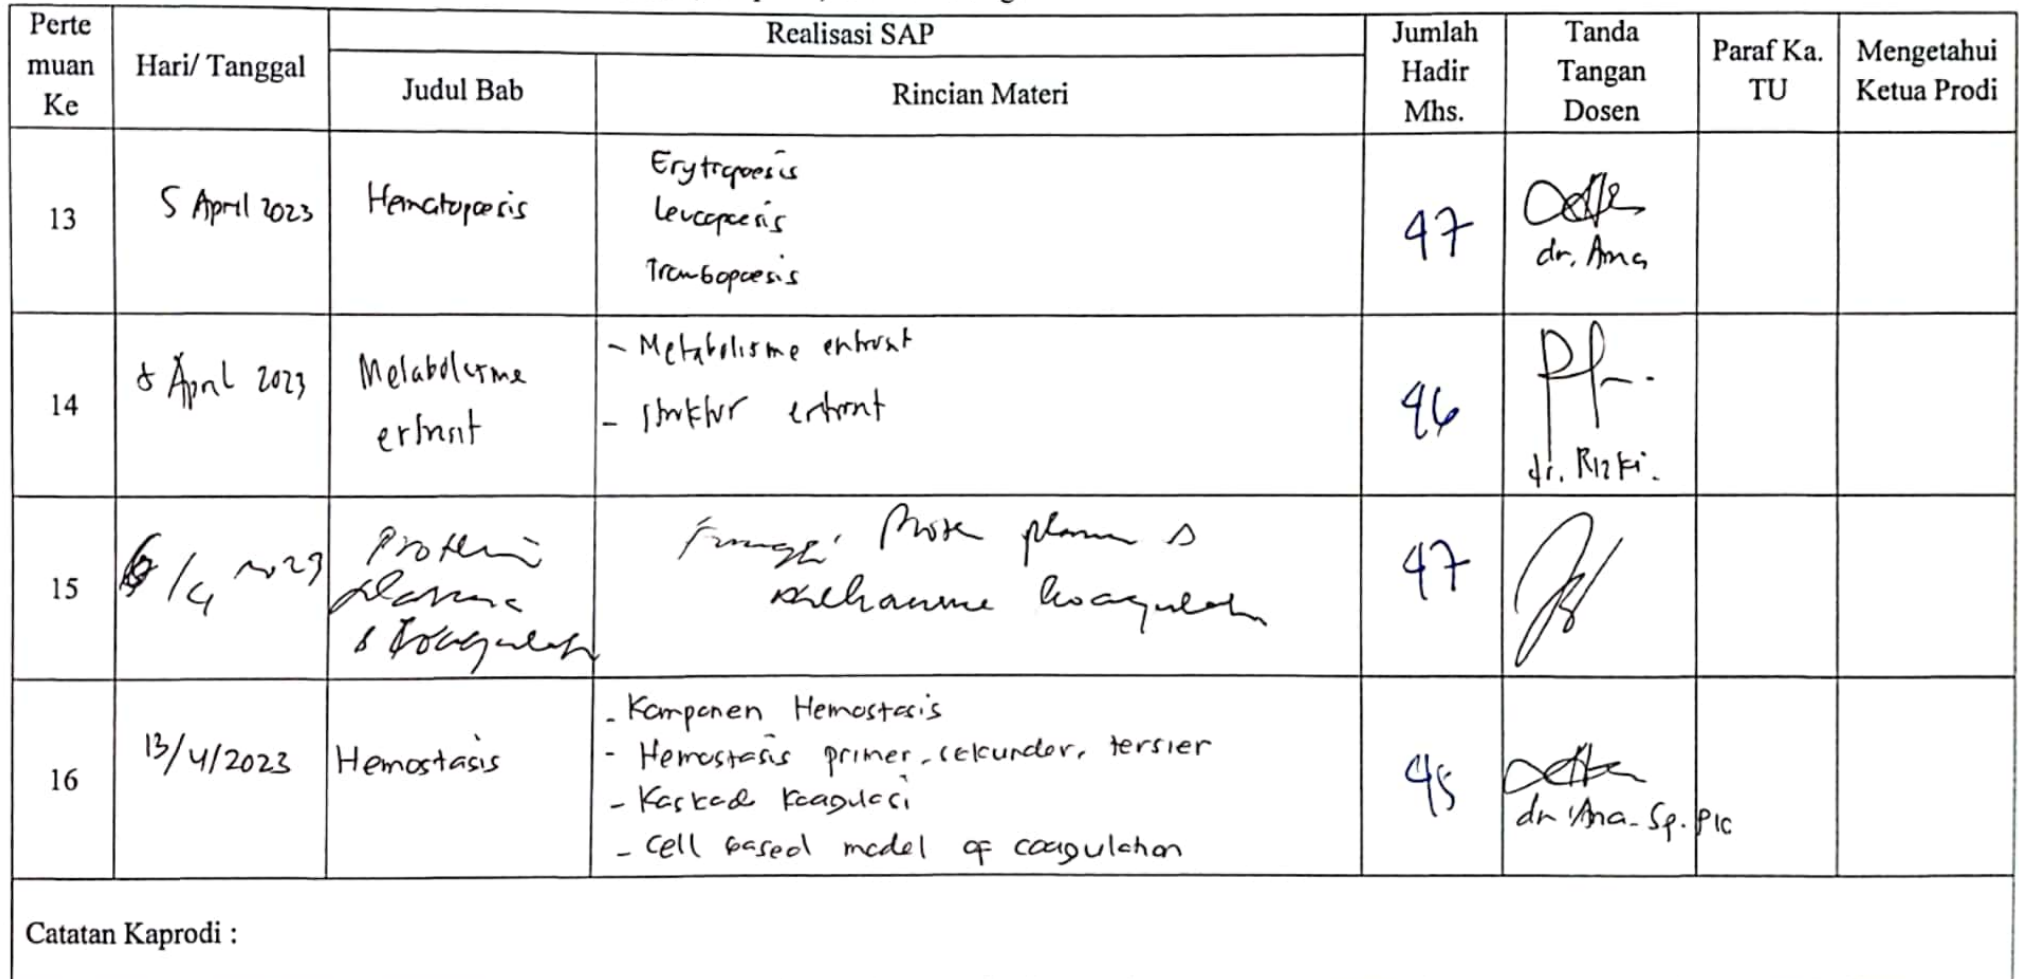 Perte
muan
Ke
Hari/ Tanggal
Realisasi SAP
Judul Bab
Rincian Materi
Jumlah
Hadir
Mhs.
Tanda
Tangan
Dosen
Paraf Ka.
TU
Mengetahui
Ketua Prodi
13
5 April 2023
Hematopoesis
Erytropoesis
Leucopoesis
Trombopoesis
47
dr. Ana
14
April 2023
Metabolisme
eritrosit
- Metabolisme eritrosit
- Struktur eritrosit
46
dr. Rizki.
15
/4 2023
Protein
plasma
& Koagulasi
Fungsi plasma &
koagulasi
47
16
13/4/2023
Hemostasis
- Komponen Hemostasis
- Hemostasis primer, sekunder, tersier
- Kaskade koagulasi
- Cell based model of coagulation
45
dr Ana. Sp. PK
Catatan Kaprodi :